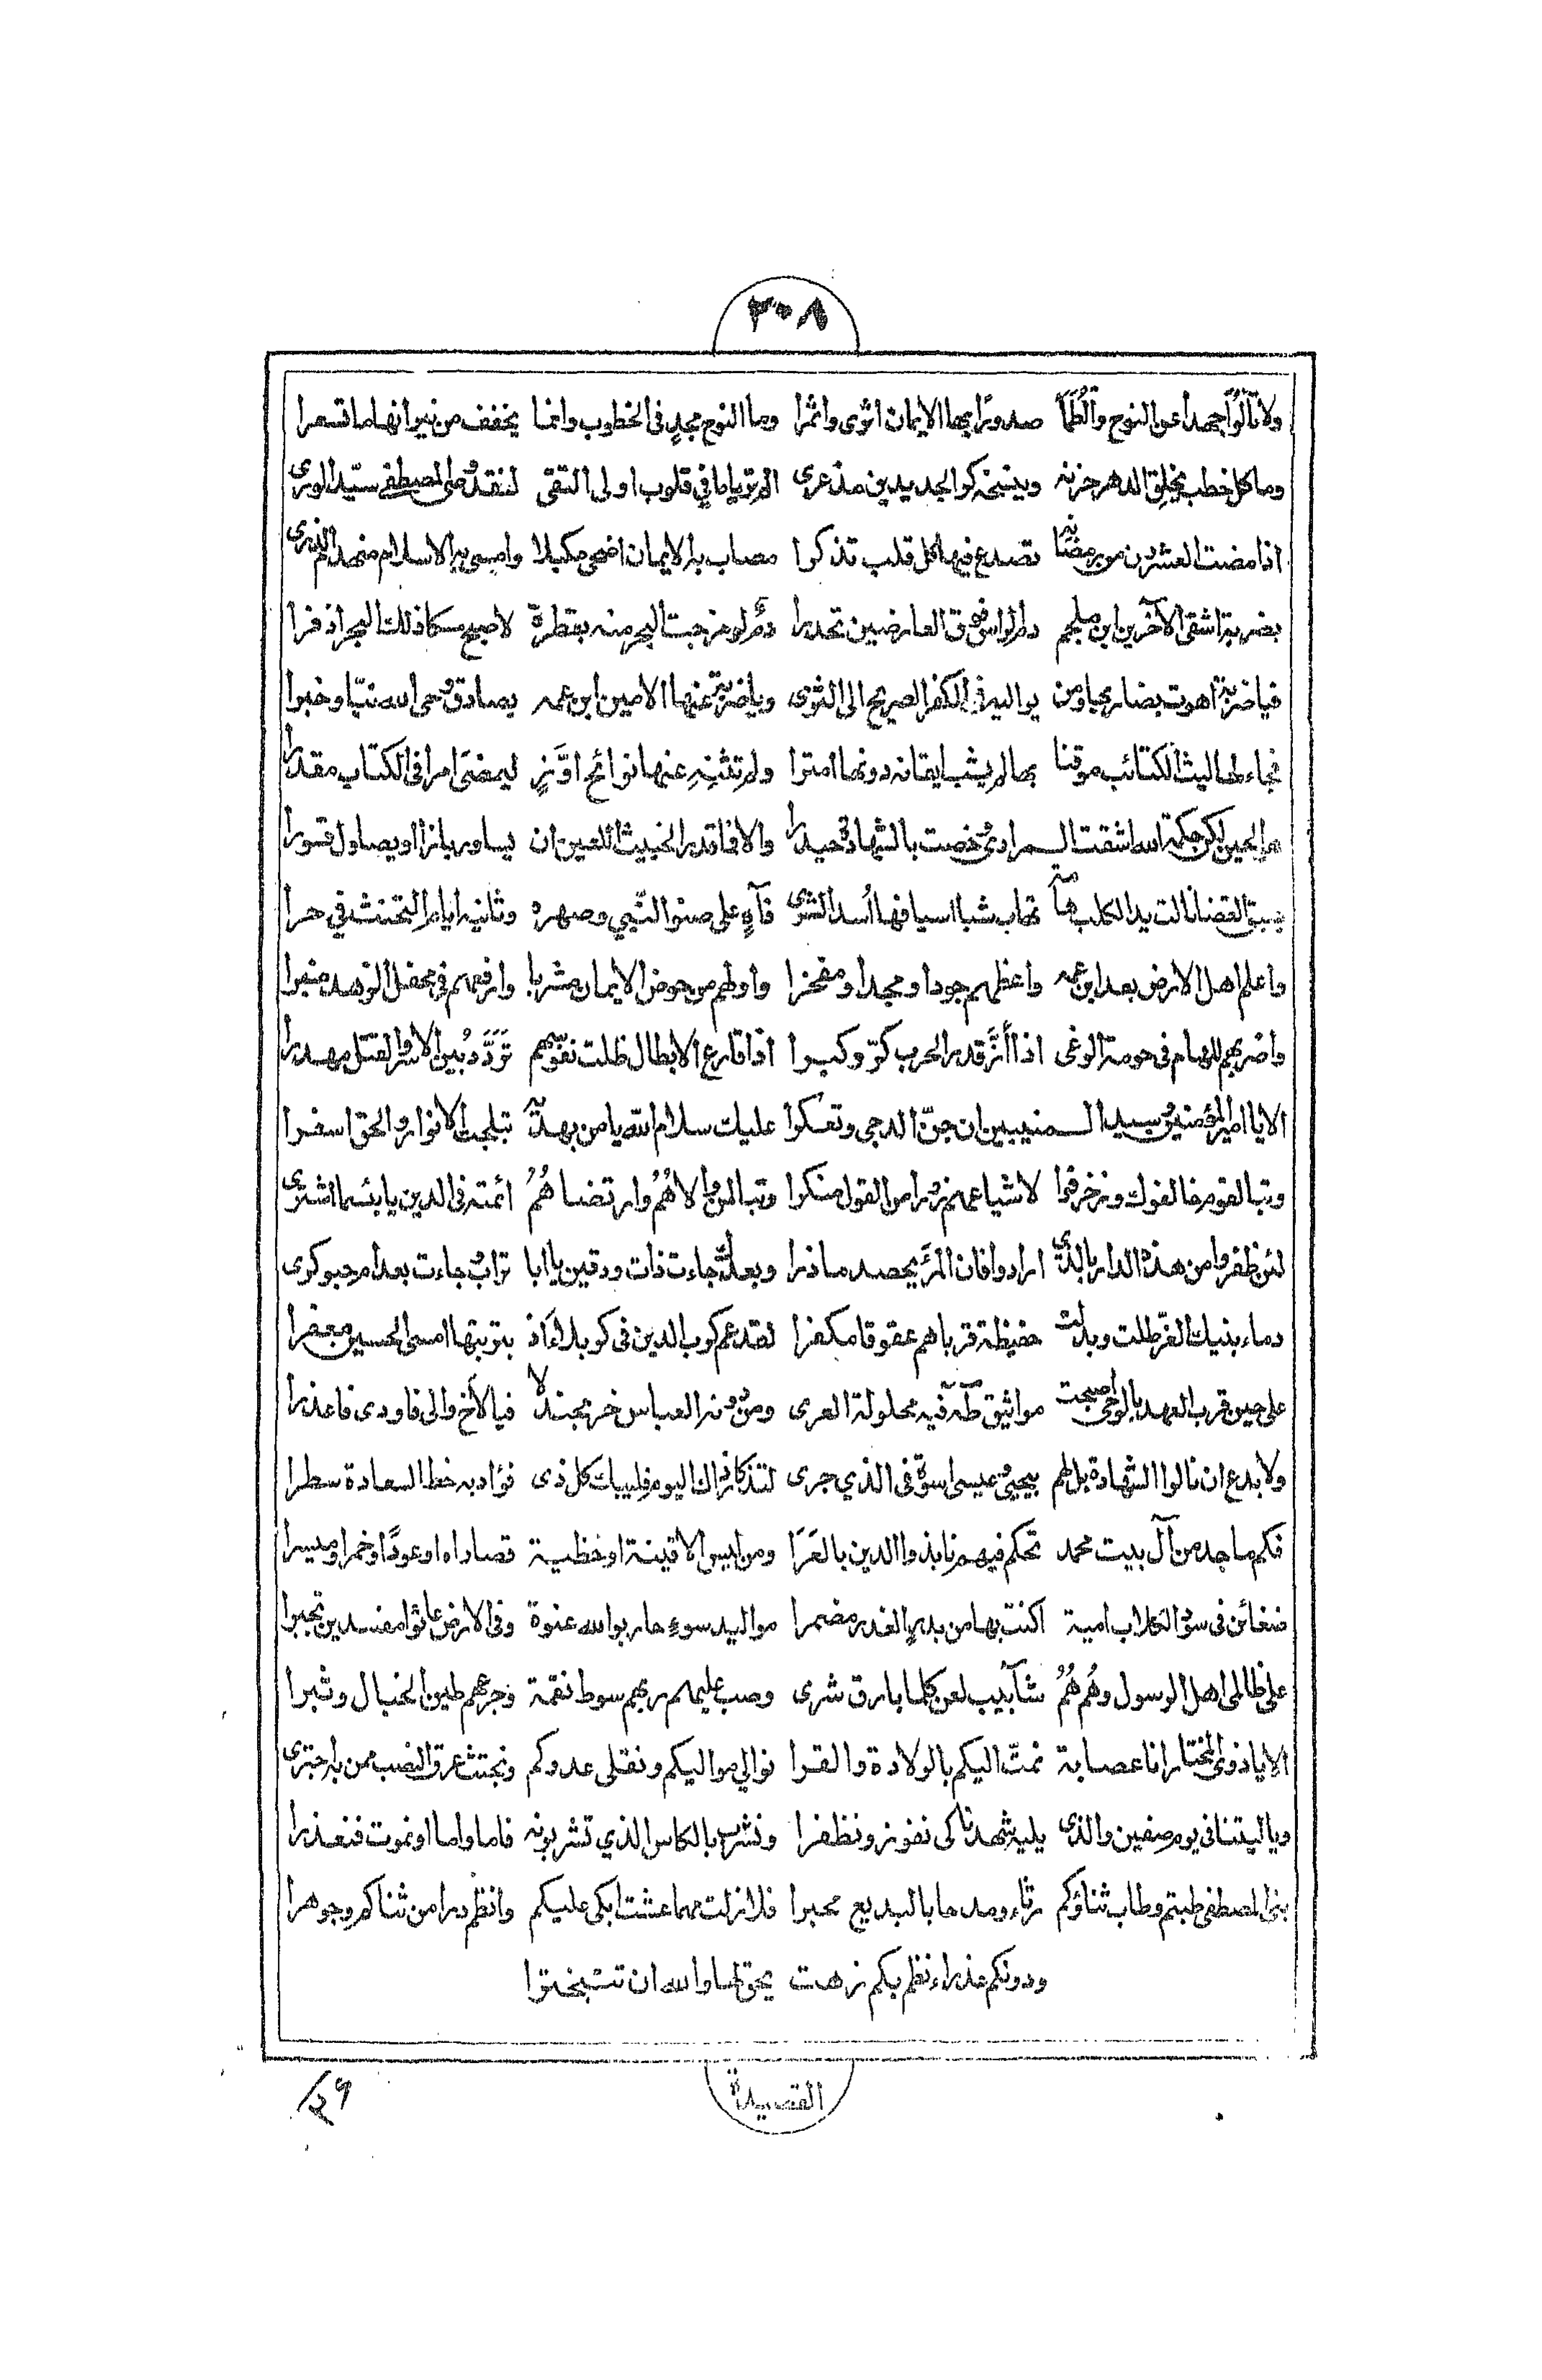 ٣٠٨
ولا تألوا جهدا عن النوح والطما صدورًا بها الايمان اثوى واثمرا وما النوح مجدٍ فى الخطوب وانما يخفف من نيرانها ما تسعرا
وما كل خطب يخلق الدهر حزنه وينسخه كر الجديدين مذ عرى الم تر ياما في قلوب اولى التقى لفقد وصى المصطفى سيّد الورى
اذا مضت العشرون من رمضانه تصدع فيها كل قلب تذكرا مصاب به الايمان اضحى مكبلا وامسى به الاسلام منهدم الذرى
بضربة اشقى الآخرين ابن ملجم دم الراس فوق العارضين تحدرا دمٌ لو مزجت البحر منه بقطرة لاصبح مسكا ذلك البحر اذفرا
فيا ضربة اهوت بضاربها ومن يواليه فى الكفر الصريح الى الثرى ويا ضربة عنها الامين ابن عمه بصادق وحى الله نبّا وخبرا
فجاء لها ليث الكتائب موقنا بها لم يشب ايقانه دونها امترا ولم تثنهِ عنها نوائح اوّزٍ ليمضى امرا فى الكتاب مقدرا
هو الحين لكن حكمة الله اشقت المرادى وخصت بالشهادة حيدرا والا فما قدر الخبيث اللعين ان يساور بازا او يصاول قسورا
بسبق القضا نالت يد الكلب هامة تهاب شبا اسيافها اُسد الشرى فآهٍ على صنو النّبي وصهره وثانيه ايام التحنث في حرا
واعلم اهل الارض بعد ابن عمه واعظمهم جودا ومجدا ومفخرا واولهم من حوض الايمان مشربا وارفعهم في محفل الزهد منبرا
واضربهم للهام فى حومة الوغى اذا أزّ قدر الحرب كرّ وكبرا اذا قارع الابطال ظلت نفوسهم تَرَدَّدُ بين الاسر والقتل مهدرا
الا يا امير المؤمنين وسيد المنيبين ان جنّ الدجى وتعكرا عليك سلام الله يا من بهديه تبلجت الانوار والحق اسفرا
وتبا لقوم خالفوك وزخرفوا لاشياعهم زورا من القول منكرا وتبا لمن والاهُمُ وارتضاهُمُ ائمته فى الدين يا بئسما اشترى
لئن ظفروا من هذه الدار بالذي ارادوا فان المرّ يحصد ما ذرا وبعدك جاءت ذات ودقين يا ابا تراب وجاءت بعد ام حبوكرى
دماء بنيك الغرّ طلت وبدلت حفيظة قرباهم عقوقا مكفرا لقد عم كرب الدين فى كربلاء اذ بتربتها امسى الحسين معفرا
على حين قرب العهد بالوحى اصبحت مواثيق طٰه فيه محلولة العرى ومن دونه العباس خر مجندلا فيا لاخ والى فاودى فاعذرا
ولا بدع ان نالوا الشهادة بل لهم بيحيى وعيسى اسوة فى الذي جرى لتذكار ذاك اليوم فليبك كل ذى فؤاد به خط السعادة سطرا
فكم ماجد من آل بيت محمد تحكم فيهم نابذوا الدين بالعَرَا ومن ليس الا قينة او خطية قصاراه او عودًا وخمرا وميسرا
ضغائن فى سود الكلاب امية اكنت بها من بدرٍ الغدر مضمرا مواليد سوءٍ حاربوا الله عنوة وفى الارض عاثوا مفسدين تجبرا
على ظالمى اهل الرسول وهُم هُمُ شآبيب لعن كلما بارق شرى وصب عليهم ربهم سوط نقمة وجرعهم طين الخبال وثبرا
الا يا ذوى المختار انا عصابة نمتّ اليكم بالولادة والقرا نوالي مواليكم ونقلى عدوكم ونجتث عرق النصب ممن به اجترى
ويا ليتنا فى يوم صفين والذى يليه شهدنا كى نفوز ونظفرا ونشرب بالكاس الذي تشربونه فاما واما او نموت فنعذرا
بنى المصطفى طبتم وطاب ثناؤكم رثاء ومدحا بالبديع محبرا فلا زلت مهما عشت ابكى عليكم وانظم درا من ثناكم وجوهرا
ودونكم عذراء نظم بكم زهت يحق لها والله ان تتبخترا
القصيدة